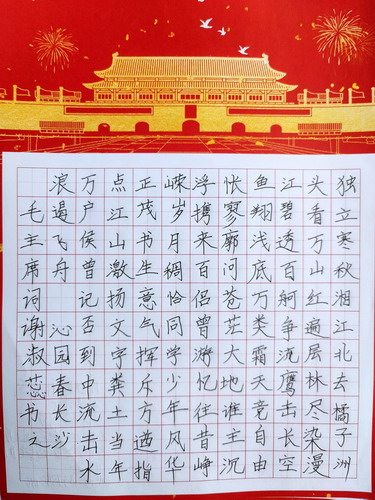 独立寒秋湘江北去橘子洲
头看万山红遍层林尽染漫
江碧透百舸争流鹰击长空
鱼翔浅底万类霜天竞自由
怅寥廓问苍茫大地谁主沉
浮携来百侣曾游忆往昔峥
嵘岁月稠恰同学少年风华
正茂书生意气挥斥方遒指
点江山激扬文字粪土当年
万户侯曾记否到中流击水
浪遏飞舟 沁园春长沙
毛主席词谢淑蕊书之